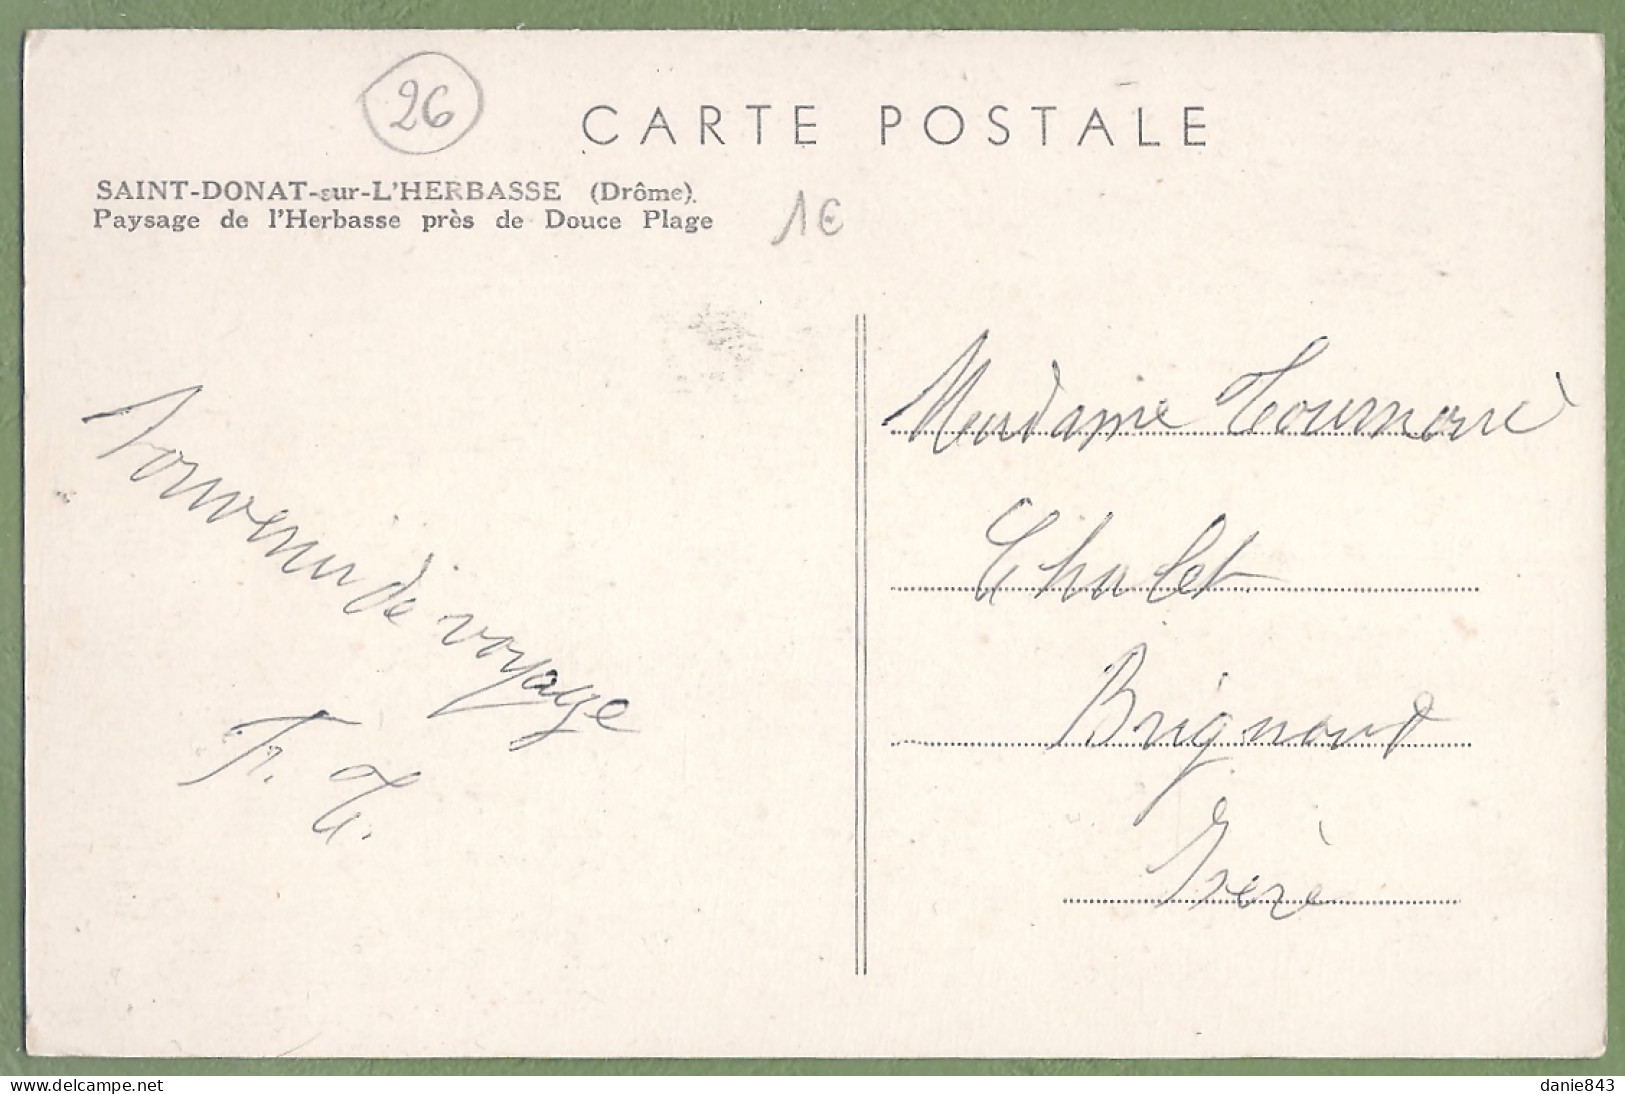 26
CARTE POSTALE
SAINT-DONAT-sur-L'HERBASSE (Drôme).
Paysage de l'Herbasse près de Douce Plage
1€
Souvenir de voyage
F. T.
Madame
Chalet
Brignoud
Isère
danie843